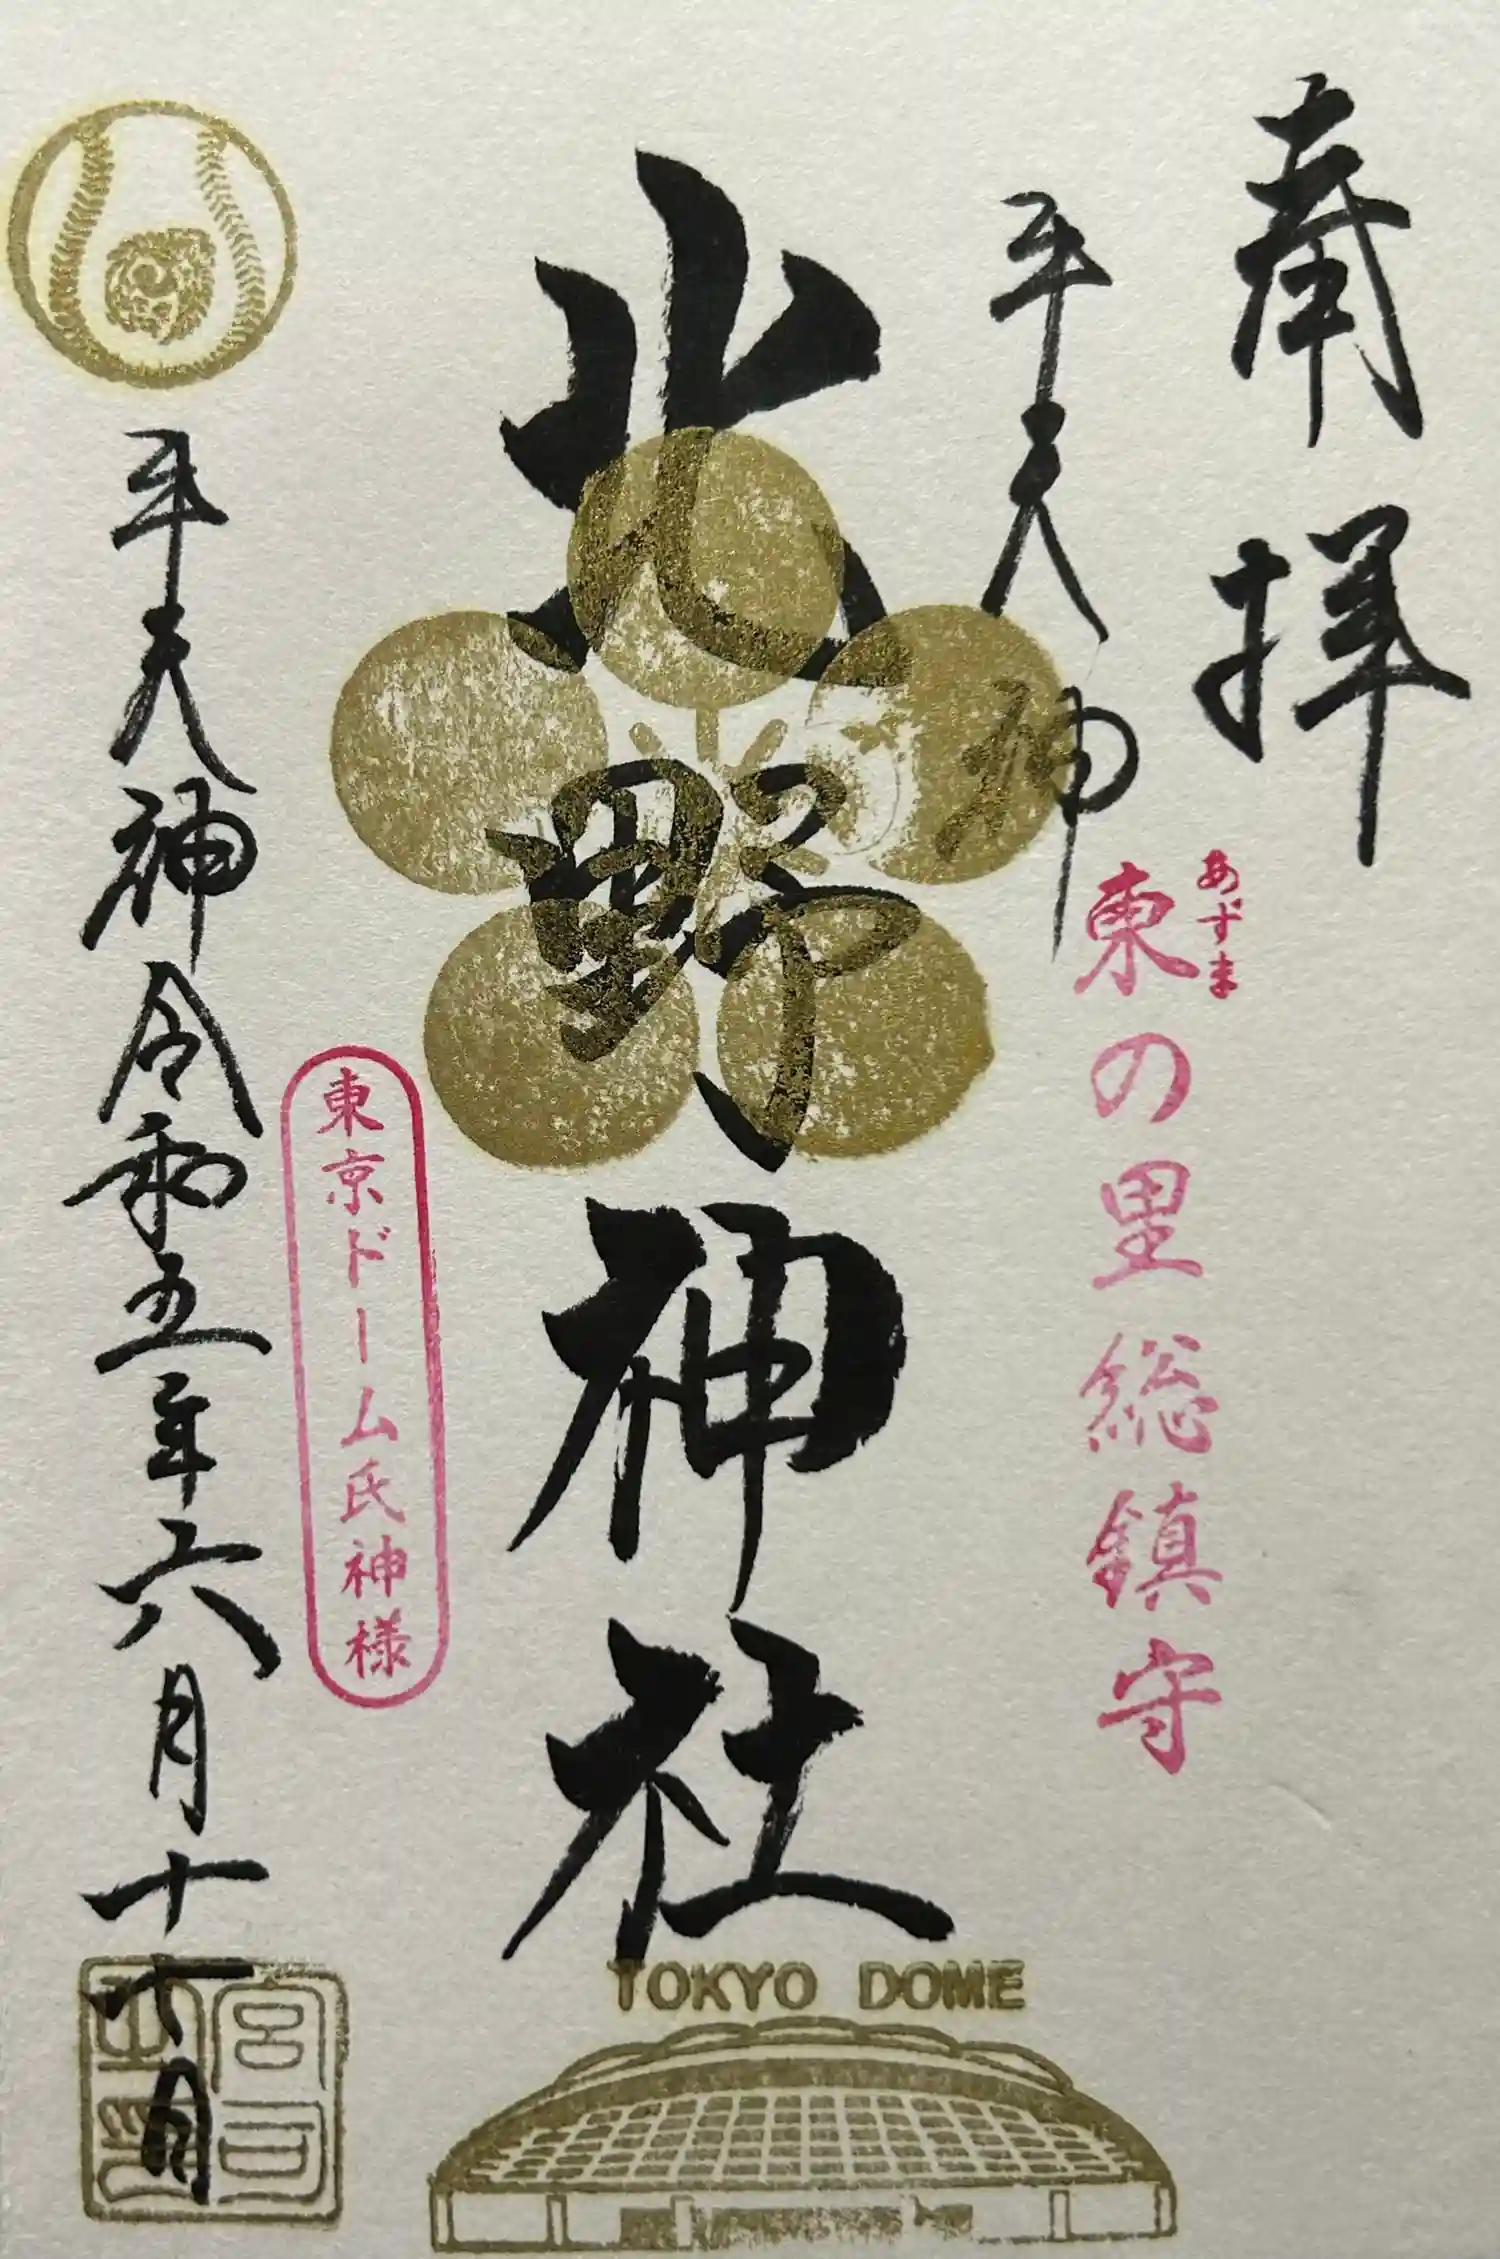 奉拝
牛天神
あずま
東の里総鎮守
北野神社
東京ドーム氏神様
牛天神
令和五年六月十七日
宮司之印
TOKYO DOME